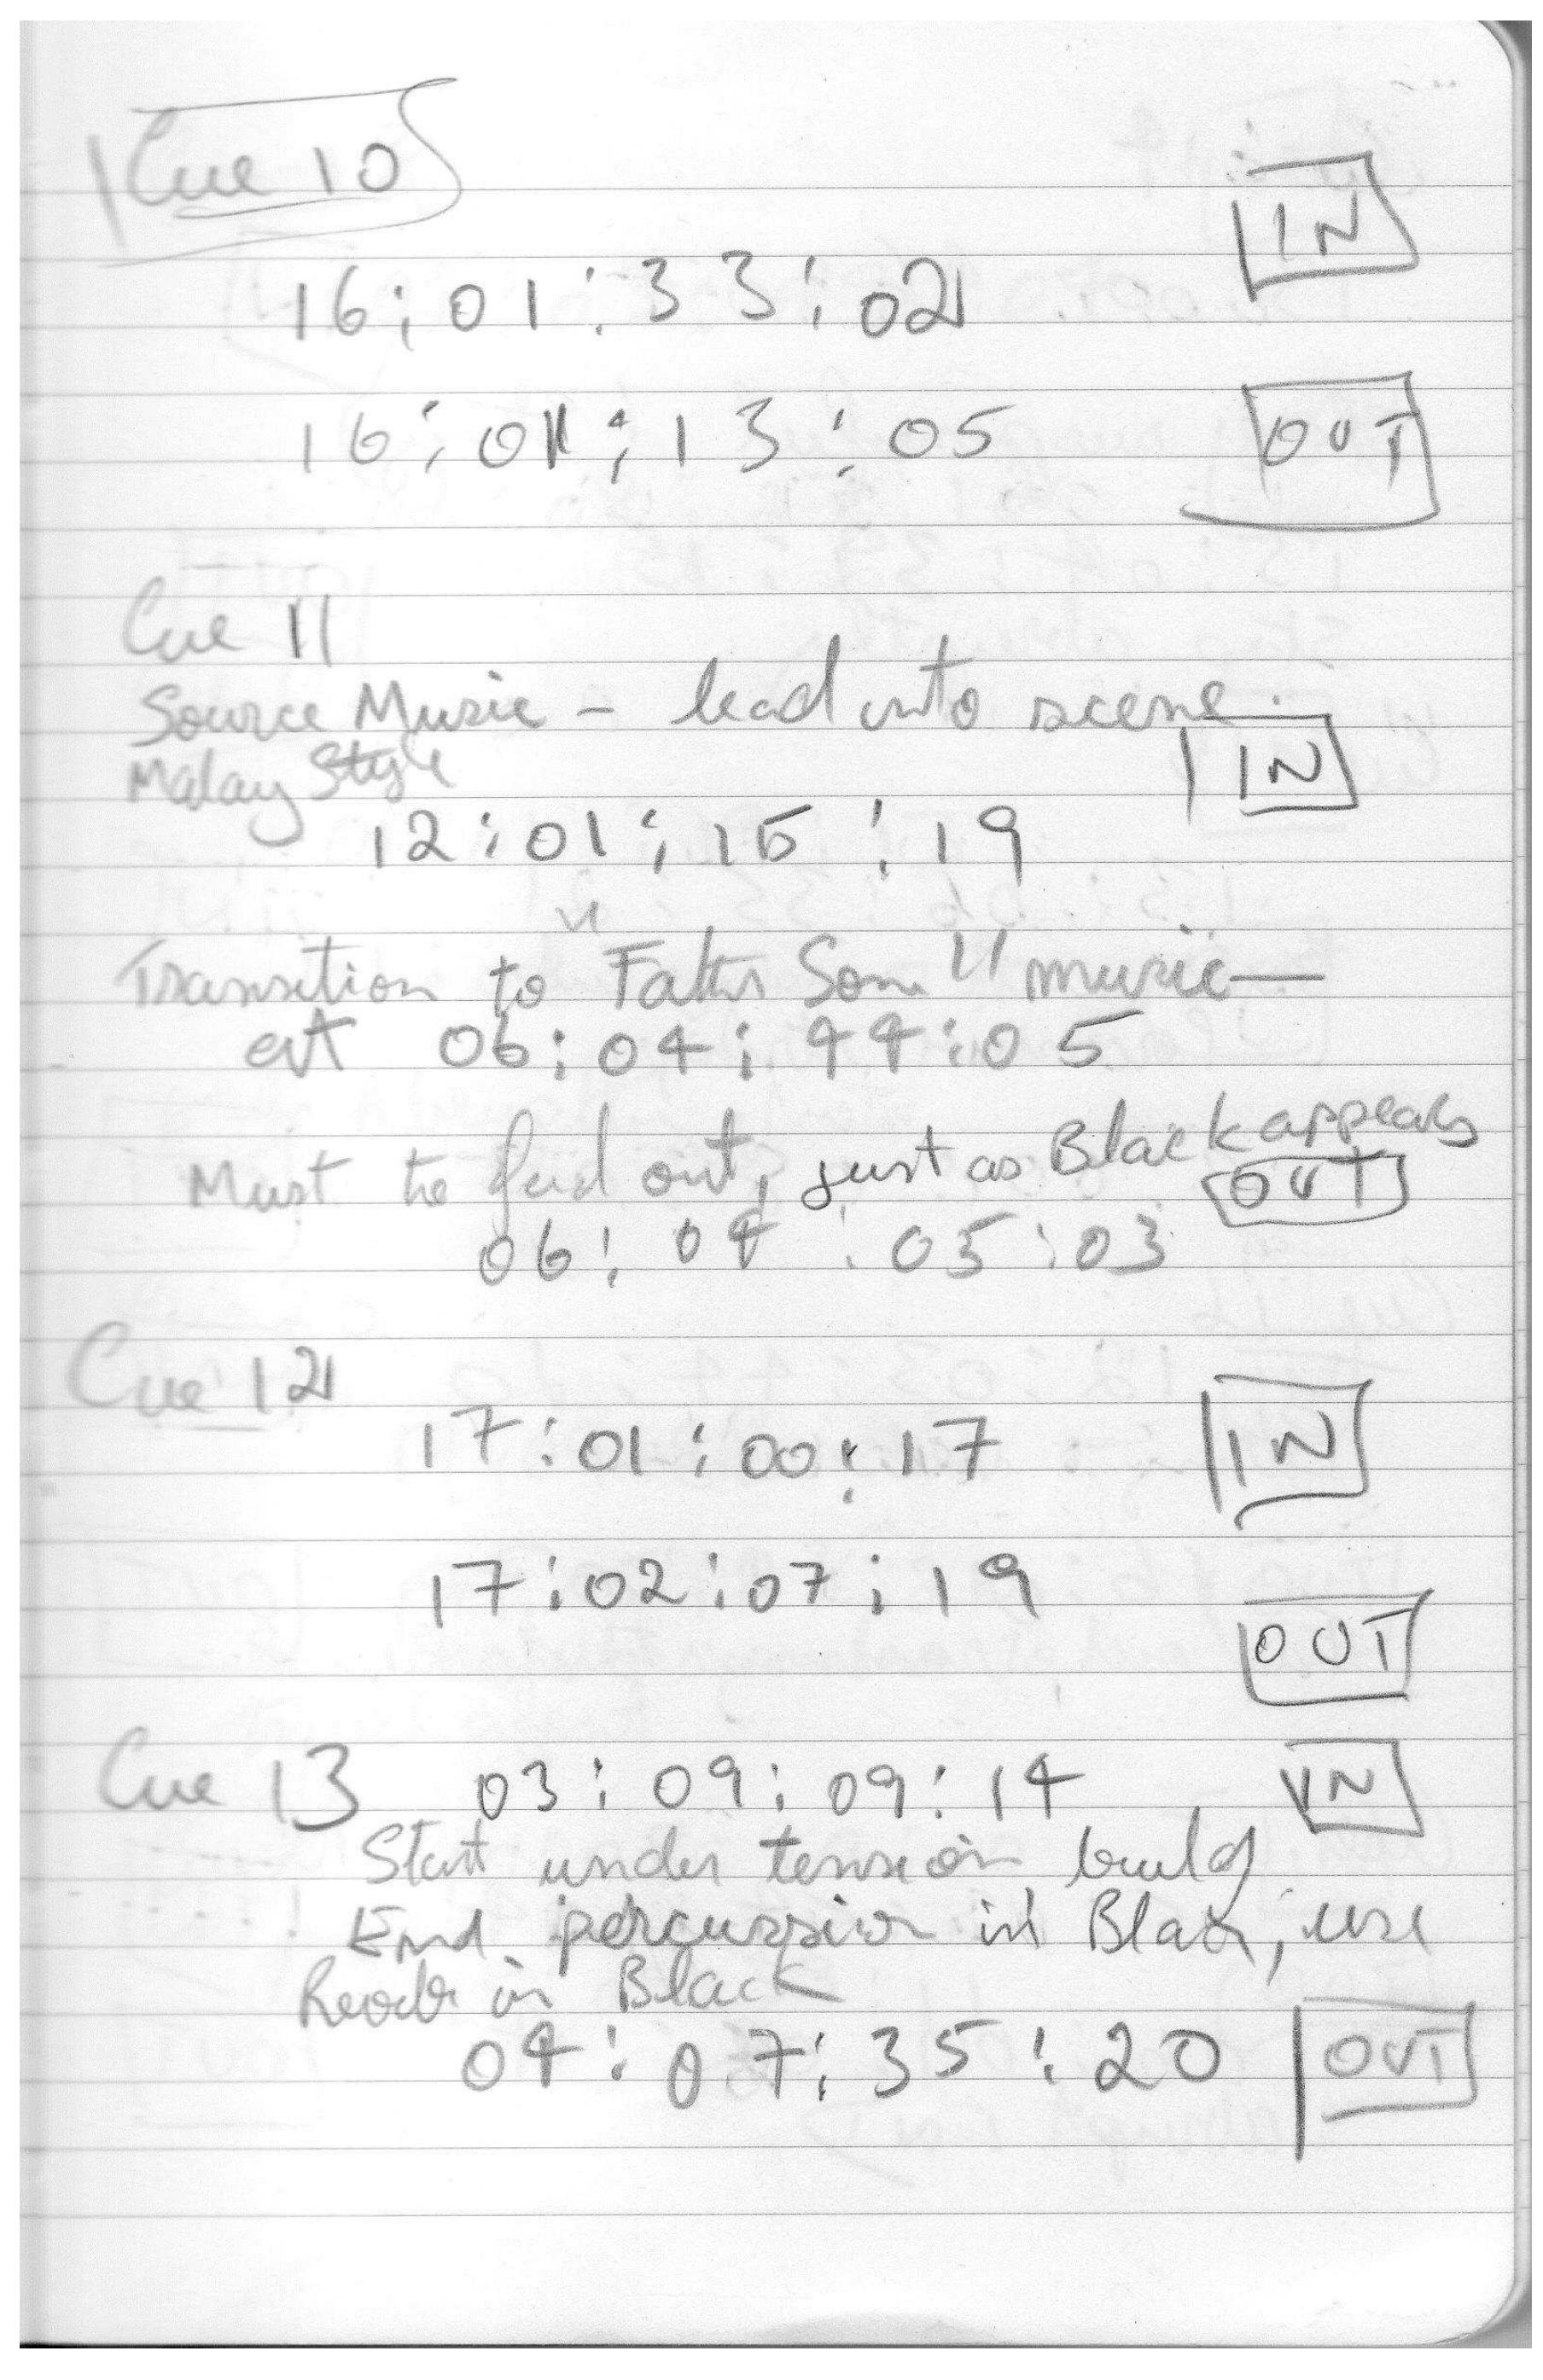 Cue 10
IN
16:01:33:02
16:01:13:05 OUT
Cue 11
Source Music - lead into scene.
Malay Style IN
12:01:15:19
Transition to "Father Son" music —
at 06:04:44:05
Must be out, just as Black appears
OUT
06:04:05:03
Cue 12
17:01:00:17 IN
17:02:07:19
OUT
Cue 13 03:09:09:14 IN
Start under tension build
End percussion in Black, use
in Black
04:07:35:20 OUT